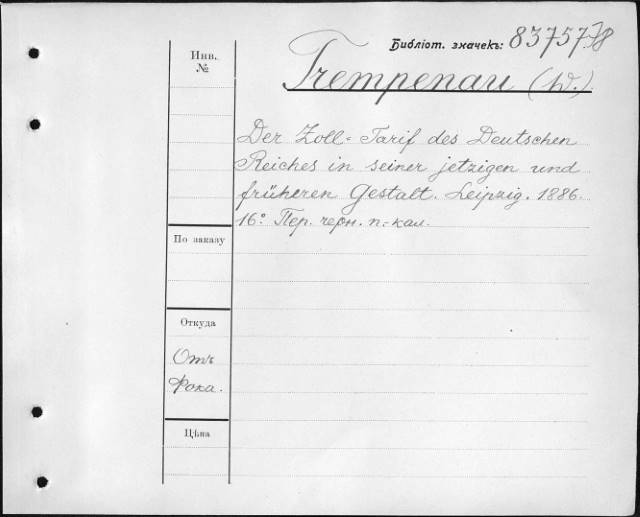 Библіот. значекъ: 83757 78
Инв. №
Trempenau (W.).
Der Zoll-Tarif des Deutschen
Reiches in seiner jetzigen und
früheren Gestalt. Leipzig. 1886.
16° Пер. черн. п.-кал.
По заказу
Откуда
Отъ
Фока.
Цѣна